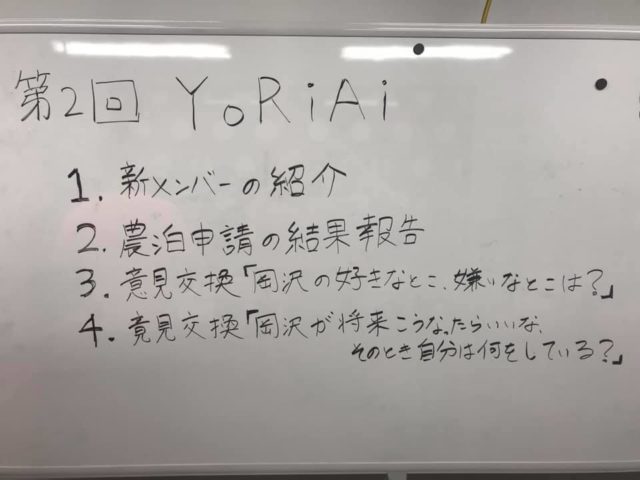 第2回 YoRiAi
1. 新メンバーの紹介
2. 農泊申請の結果報告
3. 意見交換「岡沢の好きなとこ、嫌いなとこは?」
4. 意見交換「岡沢が将来こうなったらいいな、
そのとき自分は何をしている?」